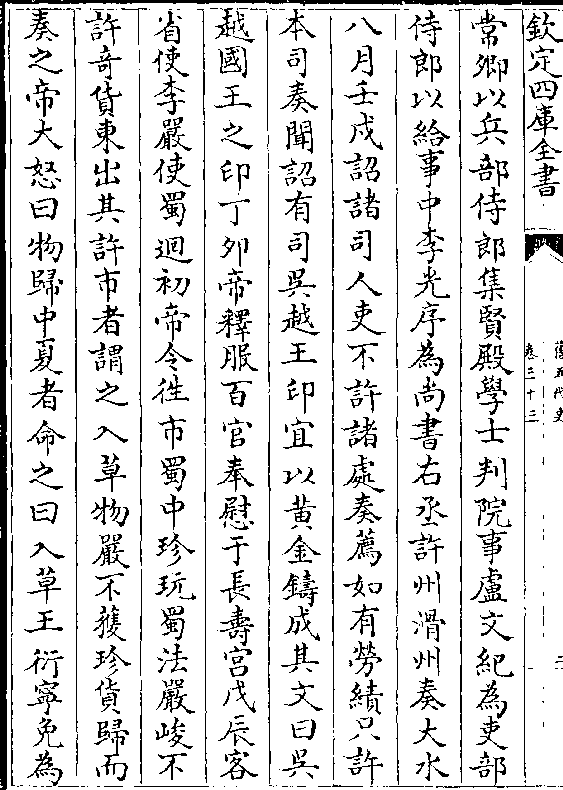 欽定四庫全書
舊五代史
卷三十三
常卿以兵部侍郎集賢殿學士判院事盧文紀為吏部
侍郎以給事中李光序為尚書右丞許州滑州奏大水
八月壬戌詔諸司人吏不許諸處奏薦如有勞績只許
本司奏聞詔有司吳越王印宜以黄金鑄成其文曰吳
越國王之印丁夘帝釋服百官奉慰于長壽宮戊辰客
省使李嚴使蜀迴初帝令徃市蜀中珍玩蜀法嚴峻不
許竒貨東出其許市者謂之入草物嚴不獲珍貨歸而
奏之帝大怒曰物歸中夏者命之曰入草王衍寧免為